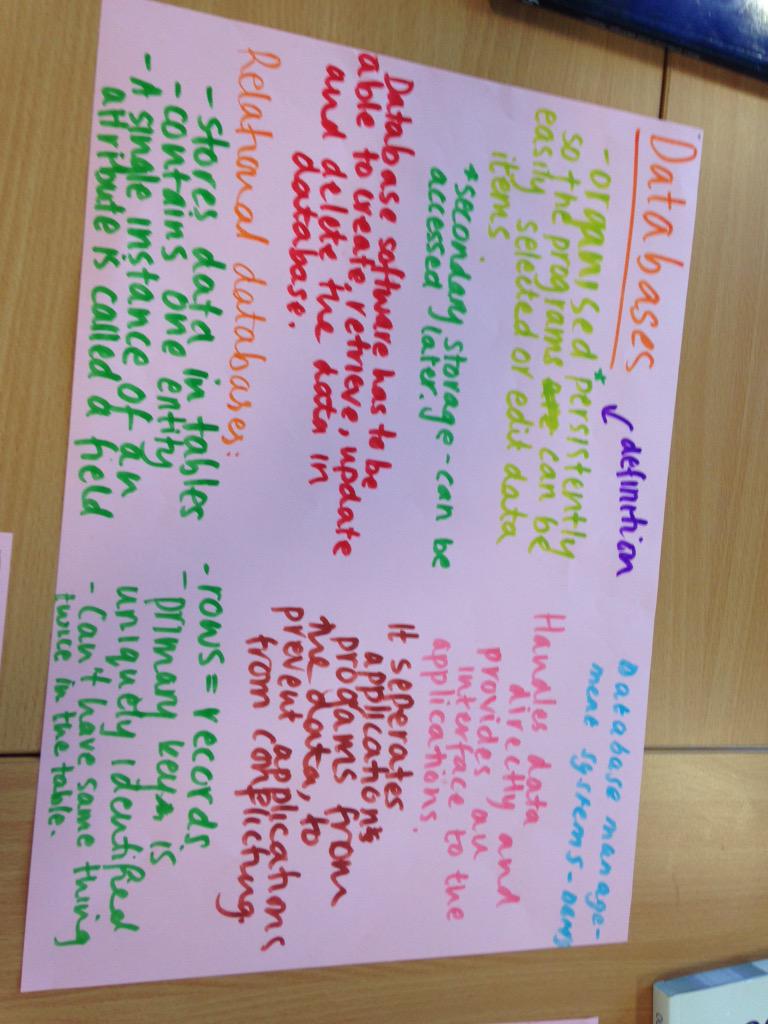 Databases
↙ definition
- organised persistently *
so the programs are can be
easily selected or edit data
items
*secondary storage - can be
accessed later.
Database software has to be
able to create, retrieve, update
and delete the data in
database.
Relational databases:
- stores data in tables
- contains one entity
- A single instance of an
attribute is called a field
Database manage-
ment systems - DBMS
Handles data
directly and
provides an
interface to the
applications.
It seperates
applications
progams from
the data, to
prevent applications
from conflicting.
- rows = records
- primary key is
uniquely identified
- Can't have same thing
twice in the table.